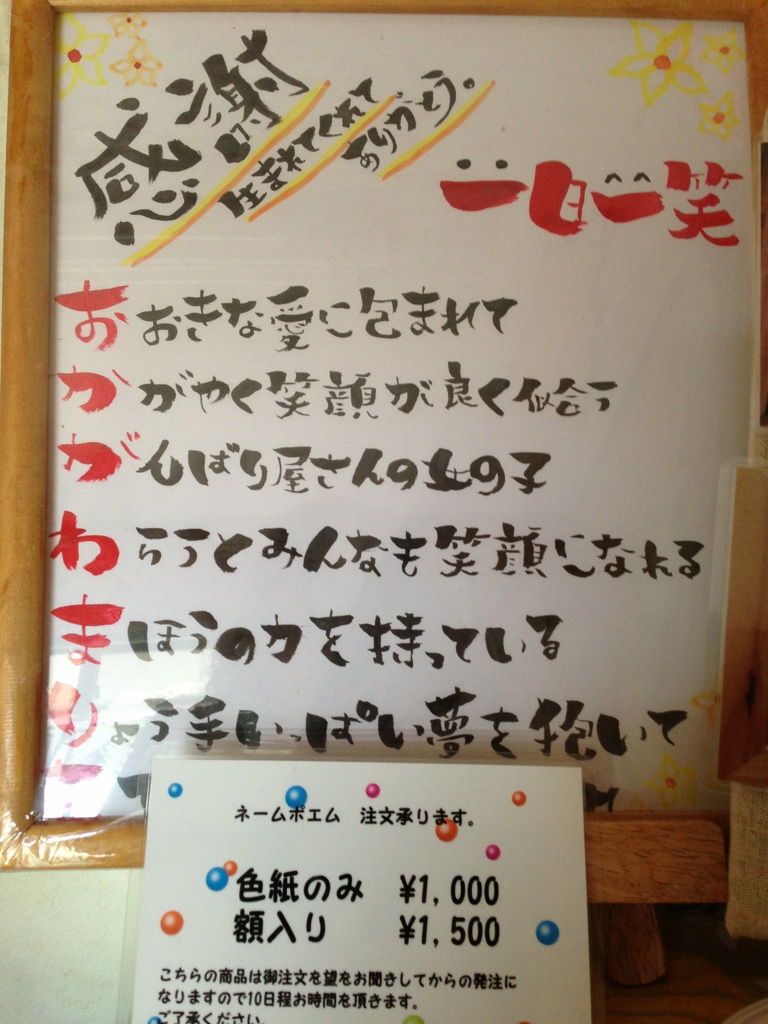 感謝
生まれてくれて
ありがとう。
一日一笑
おおきな愛に包まれて
かがやく笑顔が良く似合う
がんばり屋さんの女の子
わらうとみんなも笑顔になれる
まほうの力を持っている
りょう手いっぱい夢を抱いて
ネームポエム 注文承ります。
色紙のみ ¥1,000
額入り ¥1,500
こちらの商品は御注文を望をお聞きしてからの発注に
なりますので10日程お時間を頂きます。
ご了承ください。